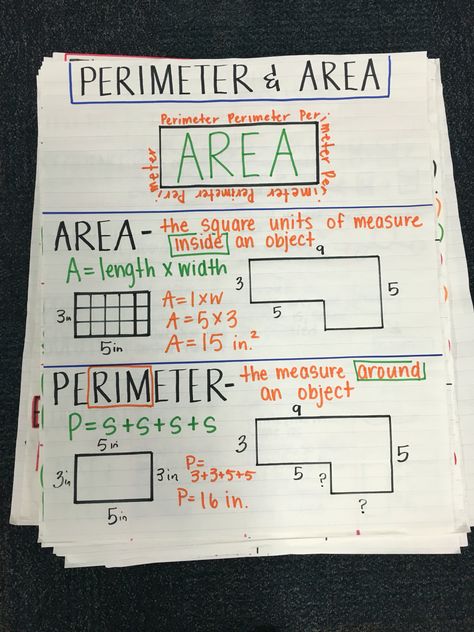 PERIMETER & AREA
Perimeter Perimeter Peri
meter Peri
meter Perimeter Peri
meter
AREA
AREA- the square units of measure
inside an object
A = length x width
9
3
5
5
3in
5in
A = l x w
A = 5 x 3
A = 15 in.²
PERIMETER- the measure around
an object
P = S + S + S + S
5in
3in
3in
5in
P=
3+3+5+5
P=16 in.
9
3
5
5
?
?